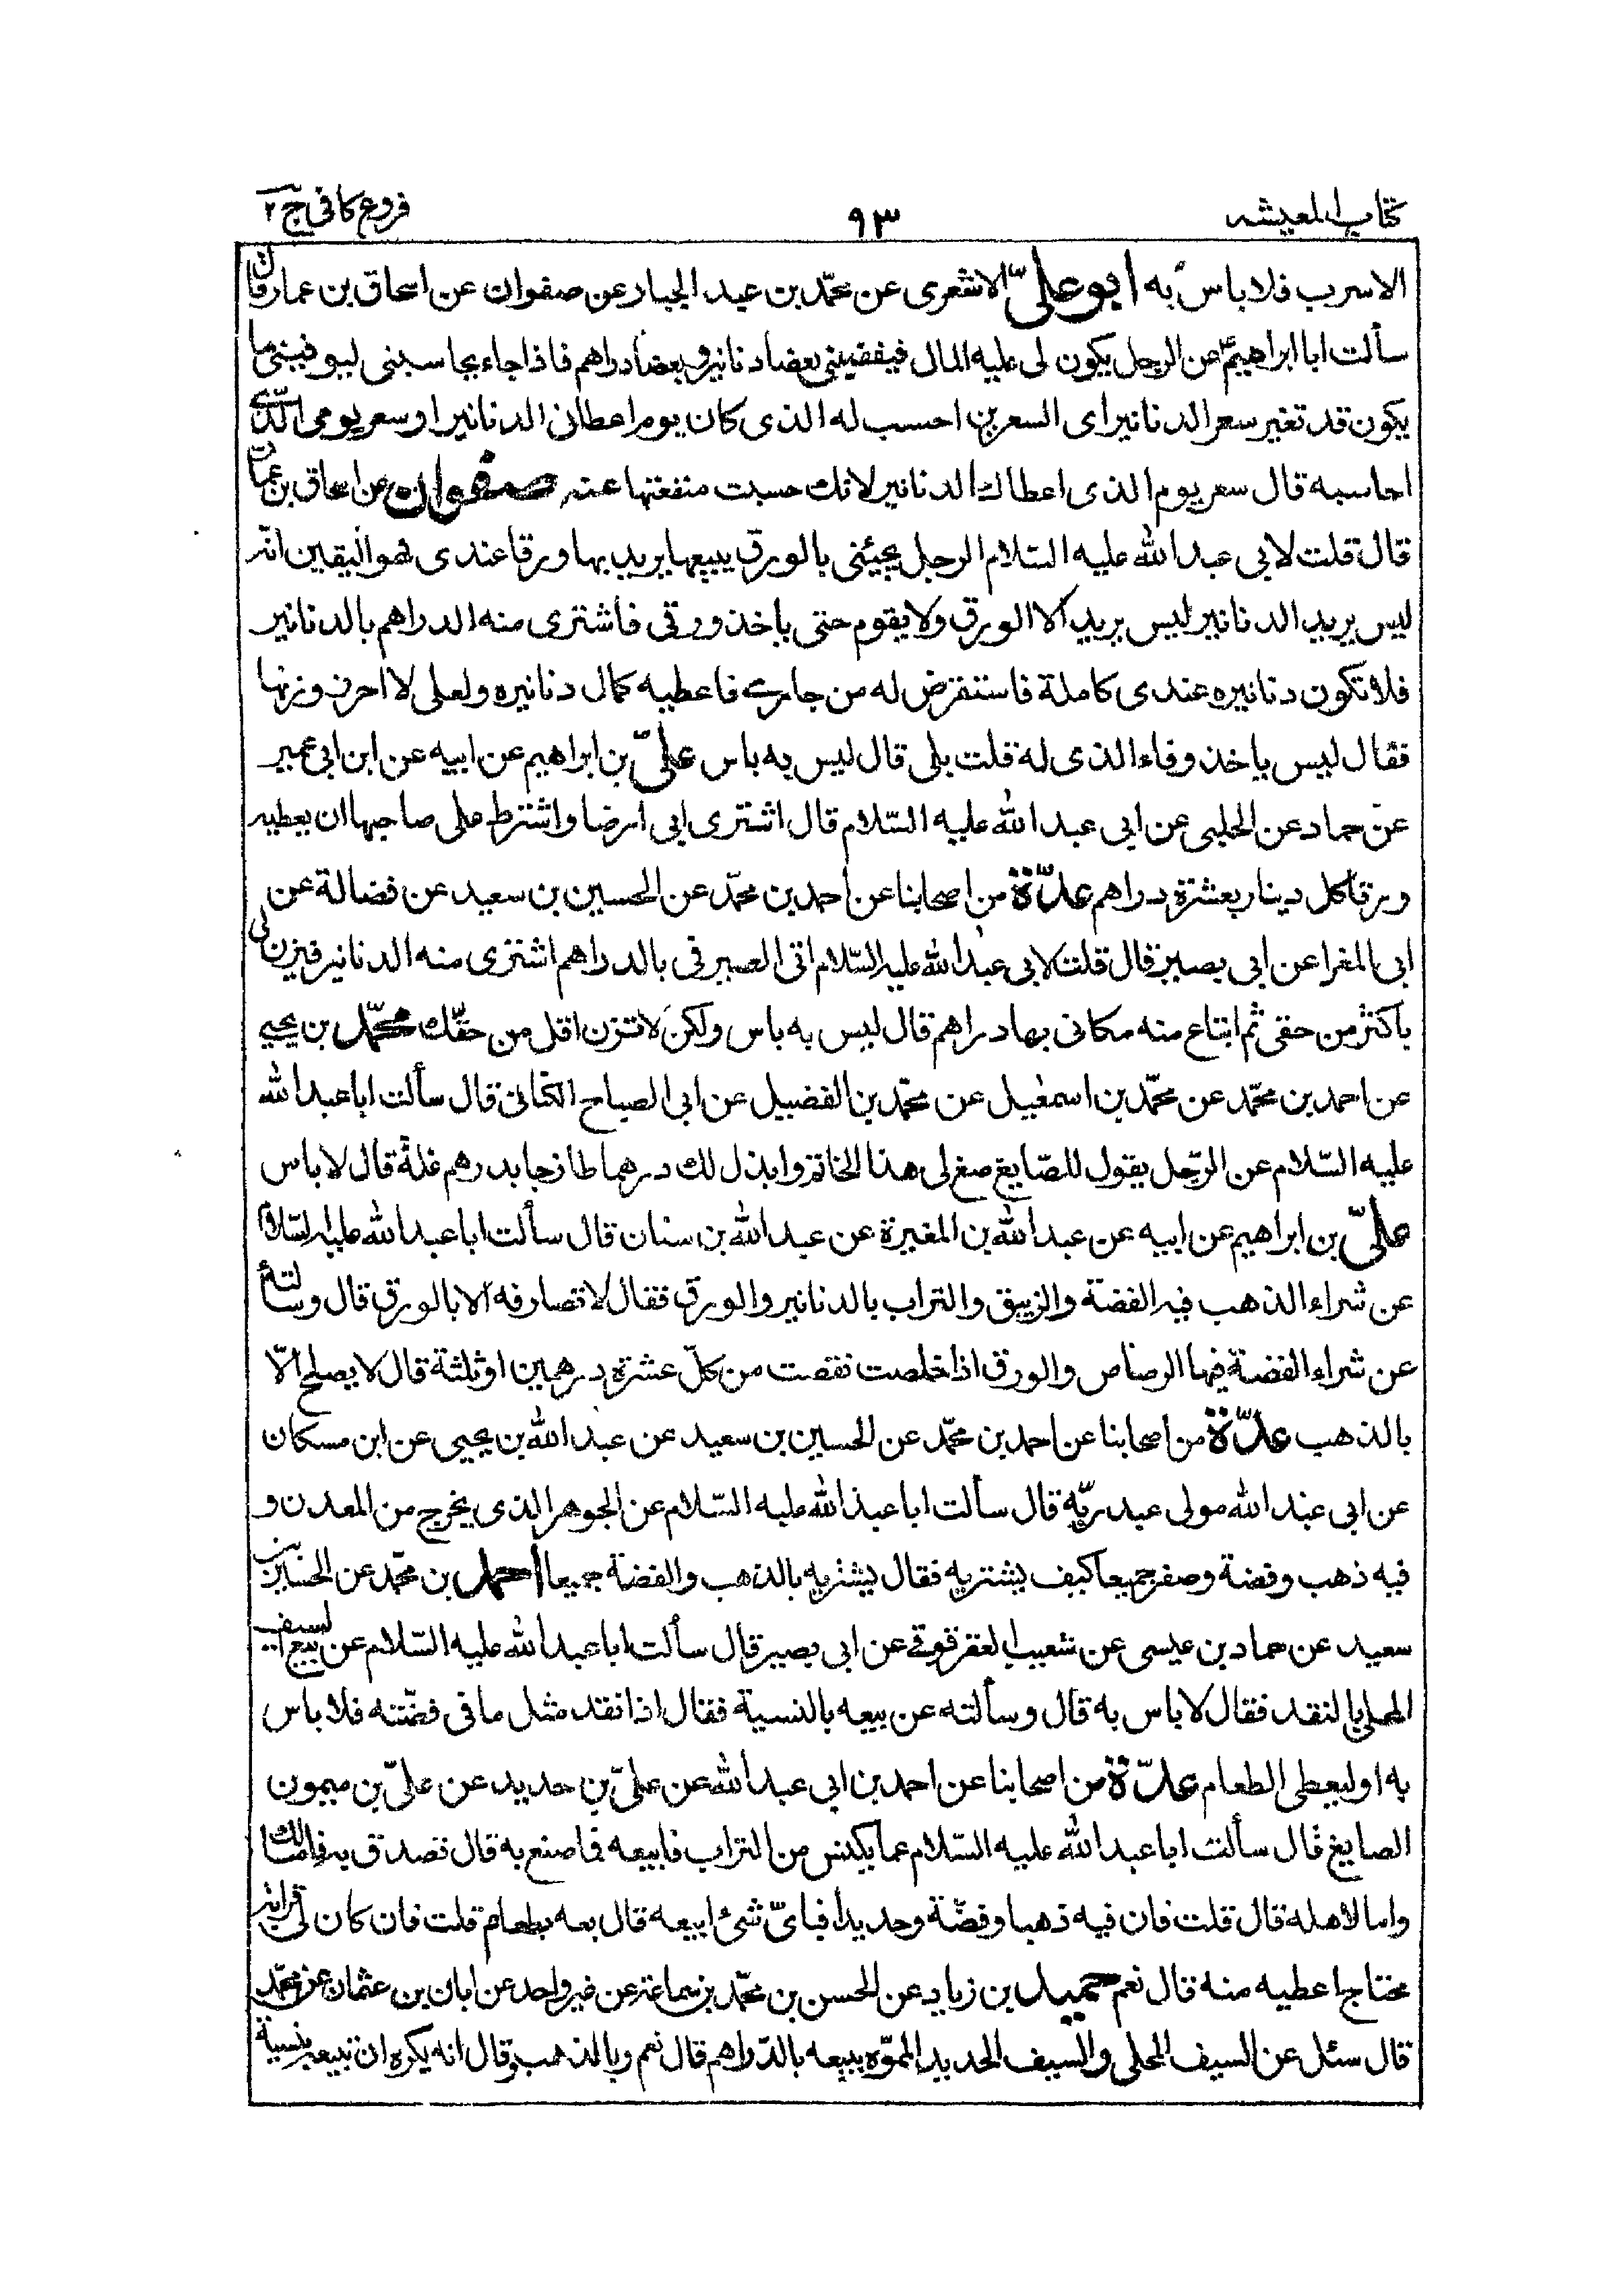 كتاب المعيشه
٩٣
فروع كافى ج ٢
الاسرب فلا باس به ابو علىّ الاشعرى عن محمّد بن عبد الجبار عن صفوان عن اسحاق بن عمار قال
سألت ابا ابراهيم ع عن الرجل يكون لى عليه المال فيقضينى بعضا دنانير و بعضا دراهم فاذا جاء يحاسبنى ليوفينى ما
يكون قد تغير سعر الدنانير اى السعرين احسب له الذى كان يوم اعطانى الدنانير او سعر يومى الّذى
احاسبه قال سعر يوم الذى اعطاك الدنانير لانك حسبت منفعتها عنه صفوان عن اسحاق بن عمار
قال قلت لابى عبد الله عليه السّلام الرجل يجيئنى بالورق يبيعها يريد بها ورقا عندى فهو اليقين انّه
ليس يريد الدنانير ليس يريد الا الورق ولا يقوم حتى ياخذ ورقى فأشترى منه الدراهم بالدنانير
فلا تكون دنانيره عندى كاملة فاستقرض له من جارى فاعطيه كمال دنانيره ولعلى لا احرز وزنها
فقال ليس ياخذ وفاء الذى له قلت بلى قال ليس به باس علىّ بن ابراهيم عن ابيه عن ابن ابى عمير
عن حماد عن الحلبى عن ابى عبد الله عليه السّلام قال اشترى ابى ارضا واشترط على صاحبها ان يعطيه
ورقا كل دينار بعشرة دراهم عدّة من اصحابنا عن احمد بن محمّد عن الحسين بن سعيد عن فضالة عن
ابى المغرا عن ابى بصير قال قلت لابى عبد الله عليه السّلام اتى الصيرفى بالدراهم اشترى منه الدنانير فيزن لى
بأكثر من حقى ثم ابتاع منه مكانى بها دراهم قال ليس به باس ولكن لا تزن اقل من حقّك محمّد بن يحيى
عن احمد بن محمّد عن محمّد بن اسمعيل عن محمّد بن الفضيل عن ابى الصباح الكنانى قال سألت ابا عبد الله
عليه السّلام عن الرّجل يقول للصّايغ صغ لى هذا الخاتم وابذل لك درهما طازجا بدرهم غلة قال لا باس
علىّ بن ابراهيم عن ابيه عن عبد الله بن المغيرة عن عبد الله بن سنان قال سألت ابا عبد الله عليه السّلام
عن شراء الذهب فيه الفضة والزيبق والتراب بالدنانير والورق فقال لا تصارفه الا بالورق قال وسألته
عن شراء الفضة فيها الرصاص والورق اذا خلصت نقصت من كلّ عشرة درهمين او ثلثة قال لا يصلح الّا
بالذهب عدّة من اصحابنا عن احمد بن محمّد عن الحسين بن سعيد عن عبد الله بن يحيى عن ابن مسكان
عن ابى عبد الله مولى عبد ربّه قال سألت ابا عبد الله عليه السّلام عن الجوهر الذى يخرج من المعدن و
فيه ذهب وفضة وصفر جميعا كيف يشتريه فقال يشتريه بالذهب والفضة جميعا احمد بن محمّد عن الحسين بن
سعيد عن حماد بن عيسى عن شعيب العقرقوفى عن ابى بصير قال سألت ابا عبد الله عليه السّلام عن بيع السيف
المحلى بالنقد فقال لا باس به قال وسألته عن بيعه بالنسية فقال اذا نقد مثل ما فى فضّته فلا باس
به او ليعطى الطعام عدّة من اصحابنا عن احمد بن ابى عبد الله عن علىّ بن حديد عن علىّ بن ميمون
الصايغ قال سألت ابا عبد الله عليه السّلام عما يكنس من التراب فابيعه فما اصنع به قال تصدق به فاما لك
واما لاهله قال قلت فان فيه ذهبا وفضّة وحديدا فباىّ شئ ابيعه قال بعه بطعام قلت فان كان لى قرابة
محتاج اعطيه منه قال نعم حميد بن زياد عن الحسن بن محمّد بن سماعة عن غير واحد عن ابان بن عثمان عن محمّد
قال سئل عن السيف المحلى والسيف الحديد المموّه يبيعه بالدّراهم قال نعم وبالذهب وقال انه يكره ان تبيعه بنسية